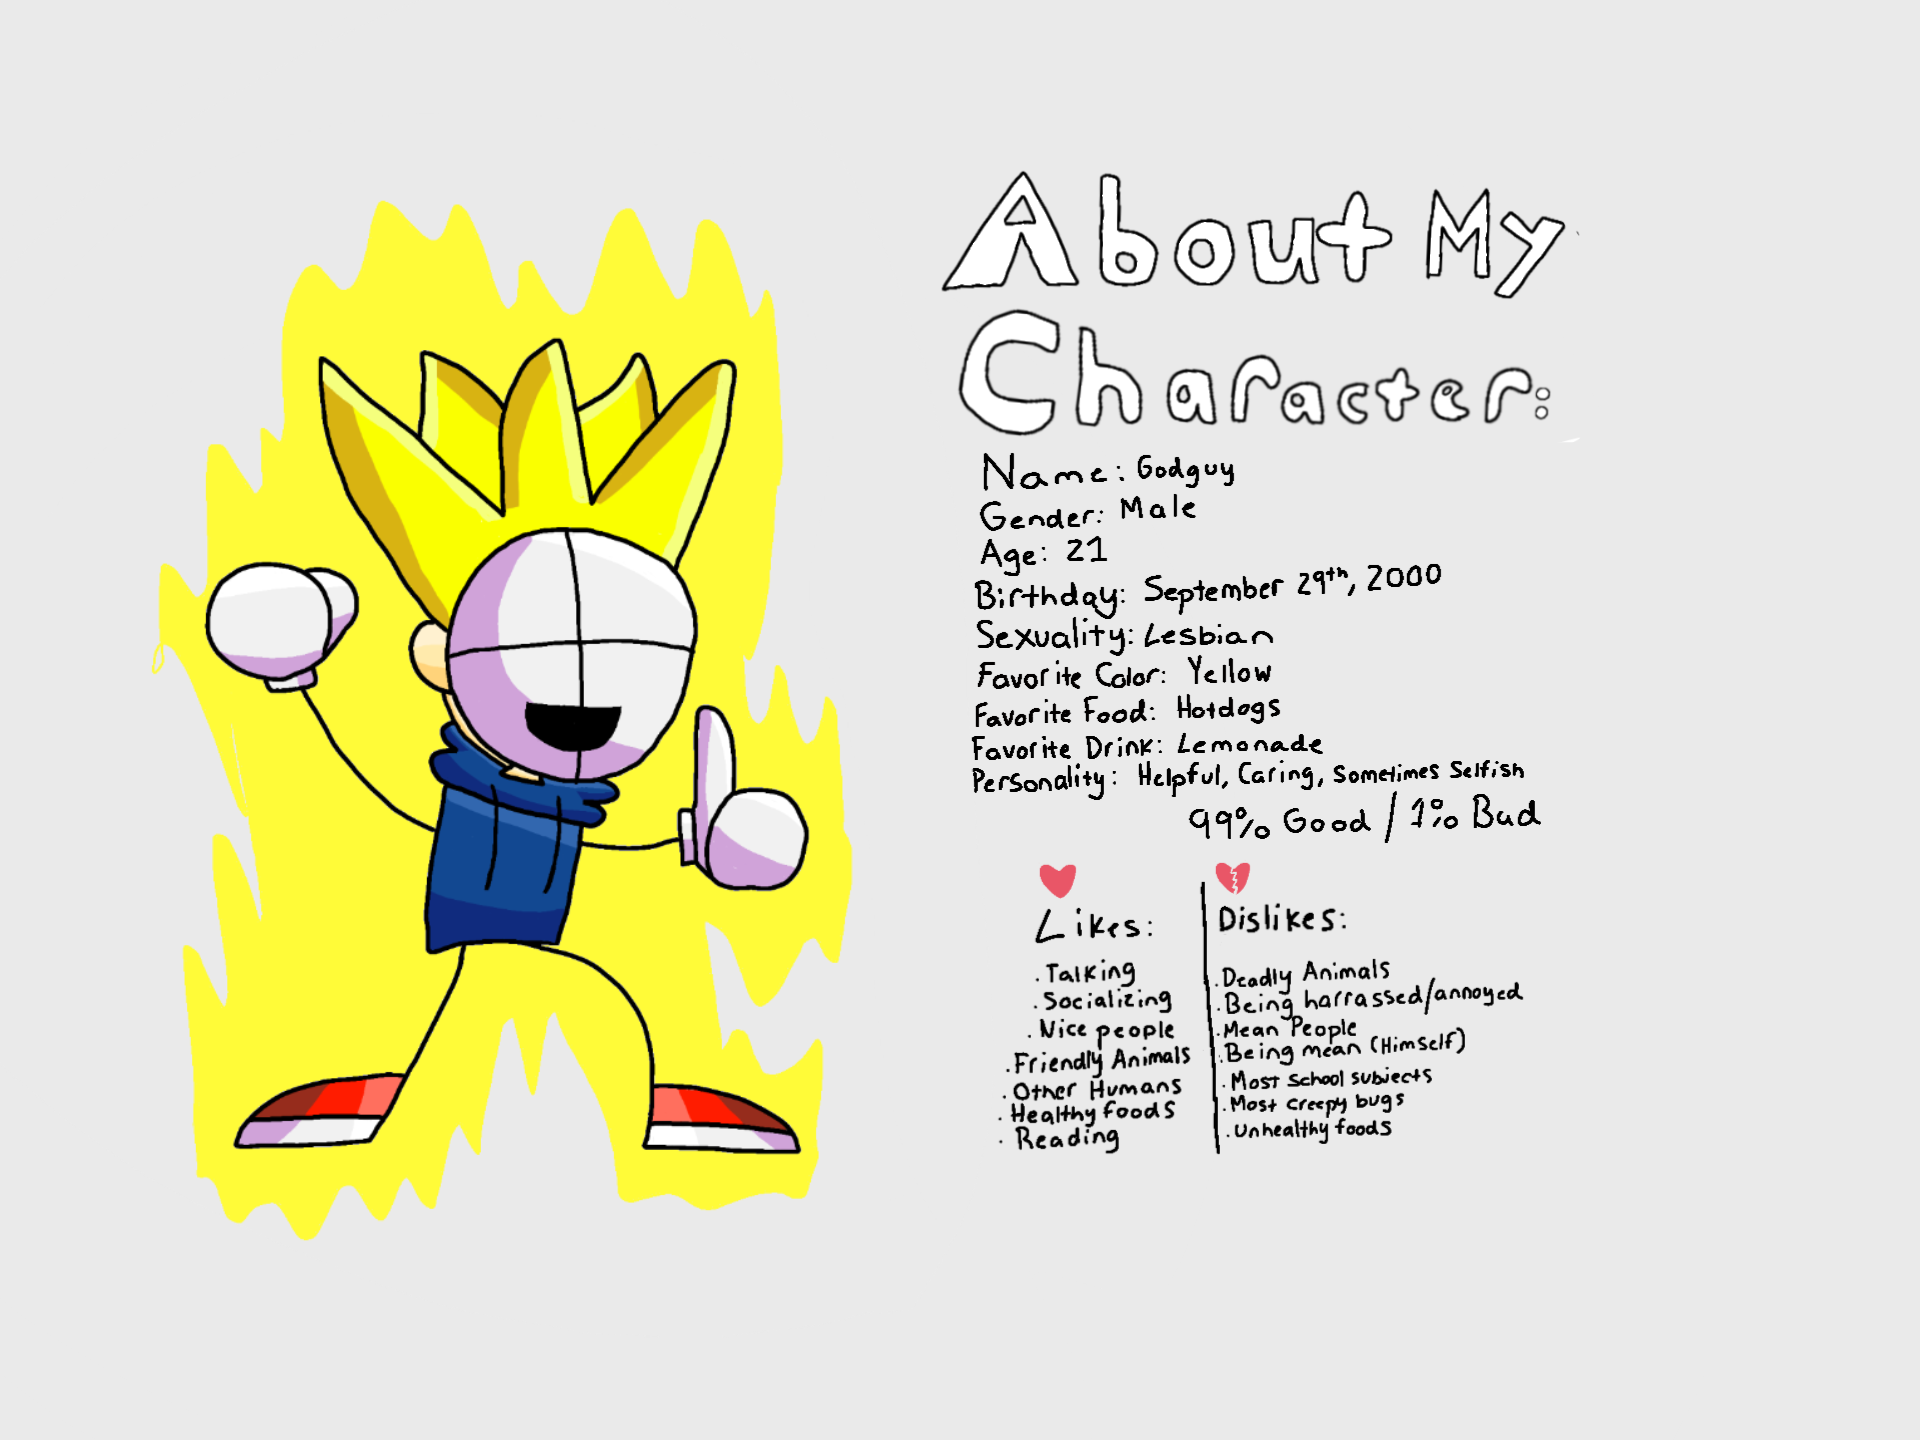 About My
Character:
Name: Godguy
Gender: Male
Age: 21
Birthday: September 29th, 2000
Sexuality: Lesbian
Favorite Color: Yellow
Favorite Food: Hotdogs
Favorite Drink: Lemonade
Personality: Helpful, Caring, Sometimes Selfish
99% Good / 1% Bad
Likes:
. Talking
. Socializing
. Nice people
. Friendly Animals
. Other Humans
. Healthy foods
. Reading
Dislikes:
. Deadly Animals
. Being harrassed/annoyed
. Mean People
. Being mean (Himself)
. Most school subjects
. Most creepy bugs
. Unhealthy foods